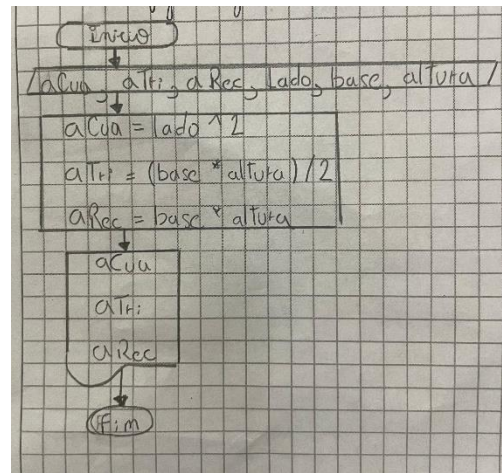 Inicio
aCua, aTri, aRec, Lado, base, altura
aCua = lado ^ 2
aTri = (base * altura) / 2
aRec = base * altura
aCua
aTri
aRec
Fim